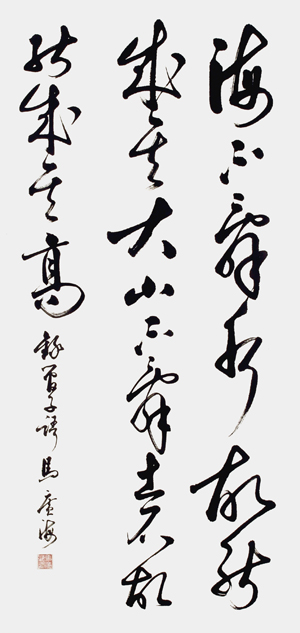 海不辭水故能
成其大山不辭土石故
能成其高 錄管子語 馬 海